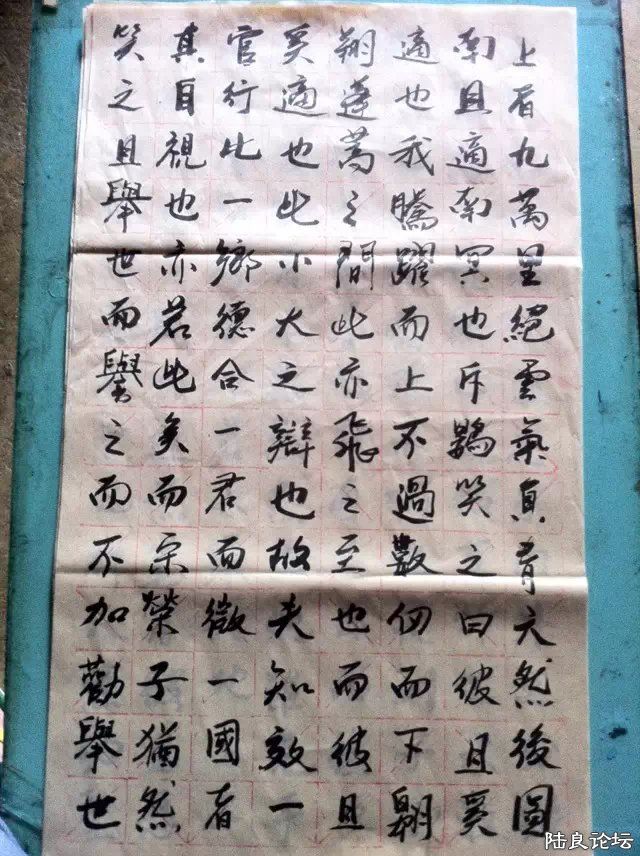 上者九萬里絕雲氣負青天然後圖
南且適南冥也斥鷃笑之曰彼且奚
適也我騰躍而上不過數仞而下翱
翔蓬蒿之間此亦飛之至也而彼且
奚適也此小大之辯也故夫知效一
官行比一鄉德合一君而徵一國者
其自視也亦若此矣而宋榮子猶然
笑之且舉世而譽之而不加勸舉世
陆良论坛